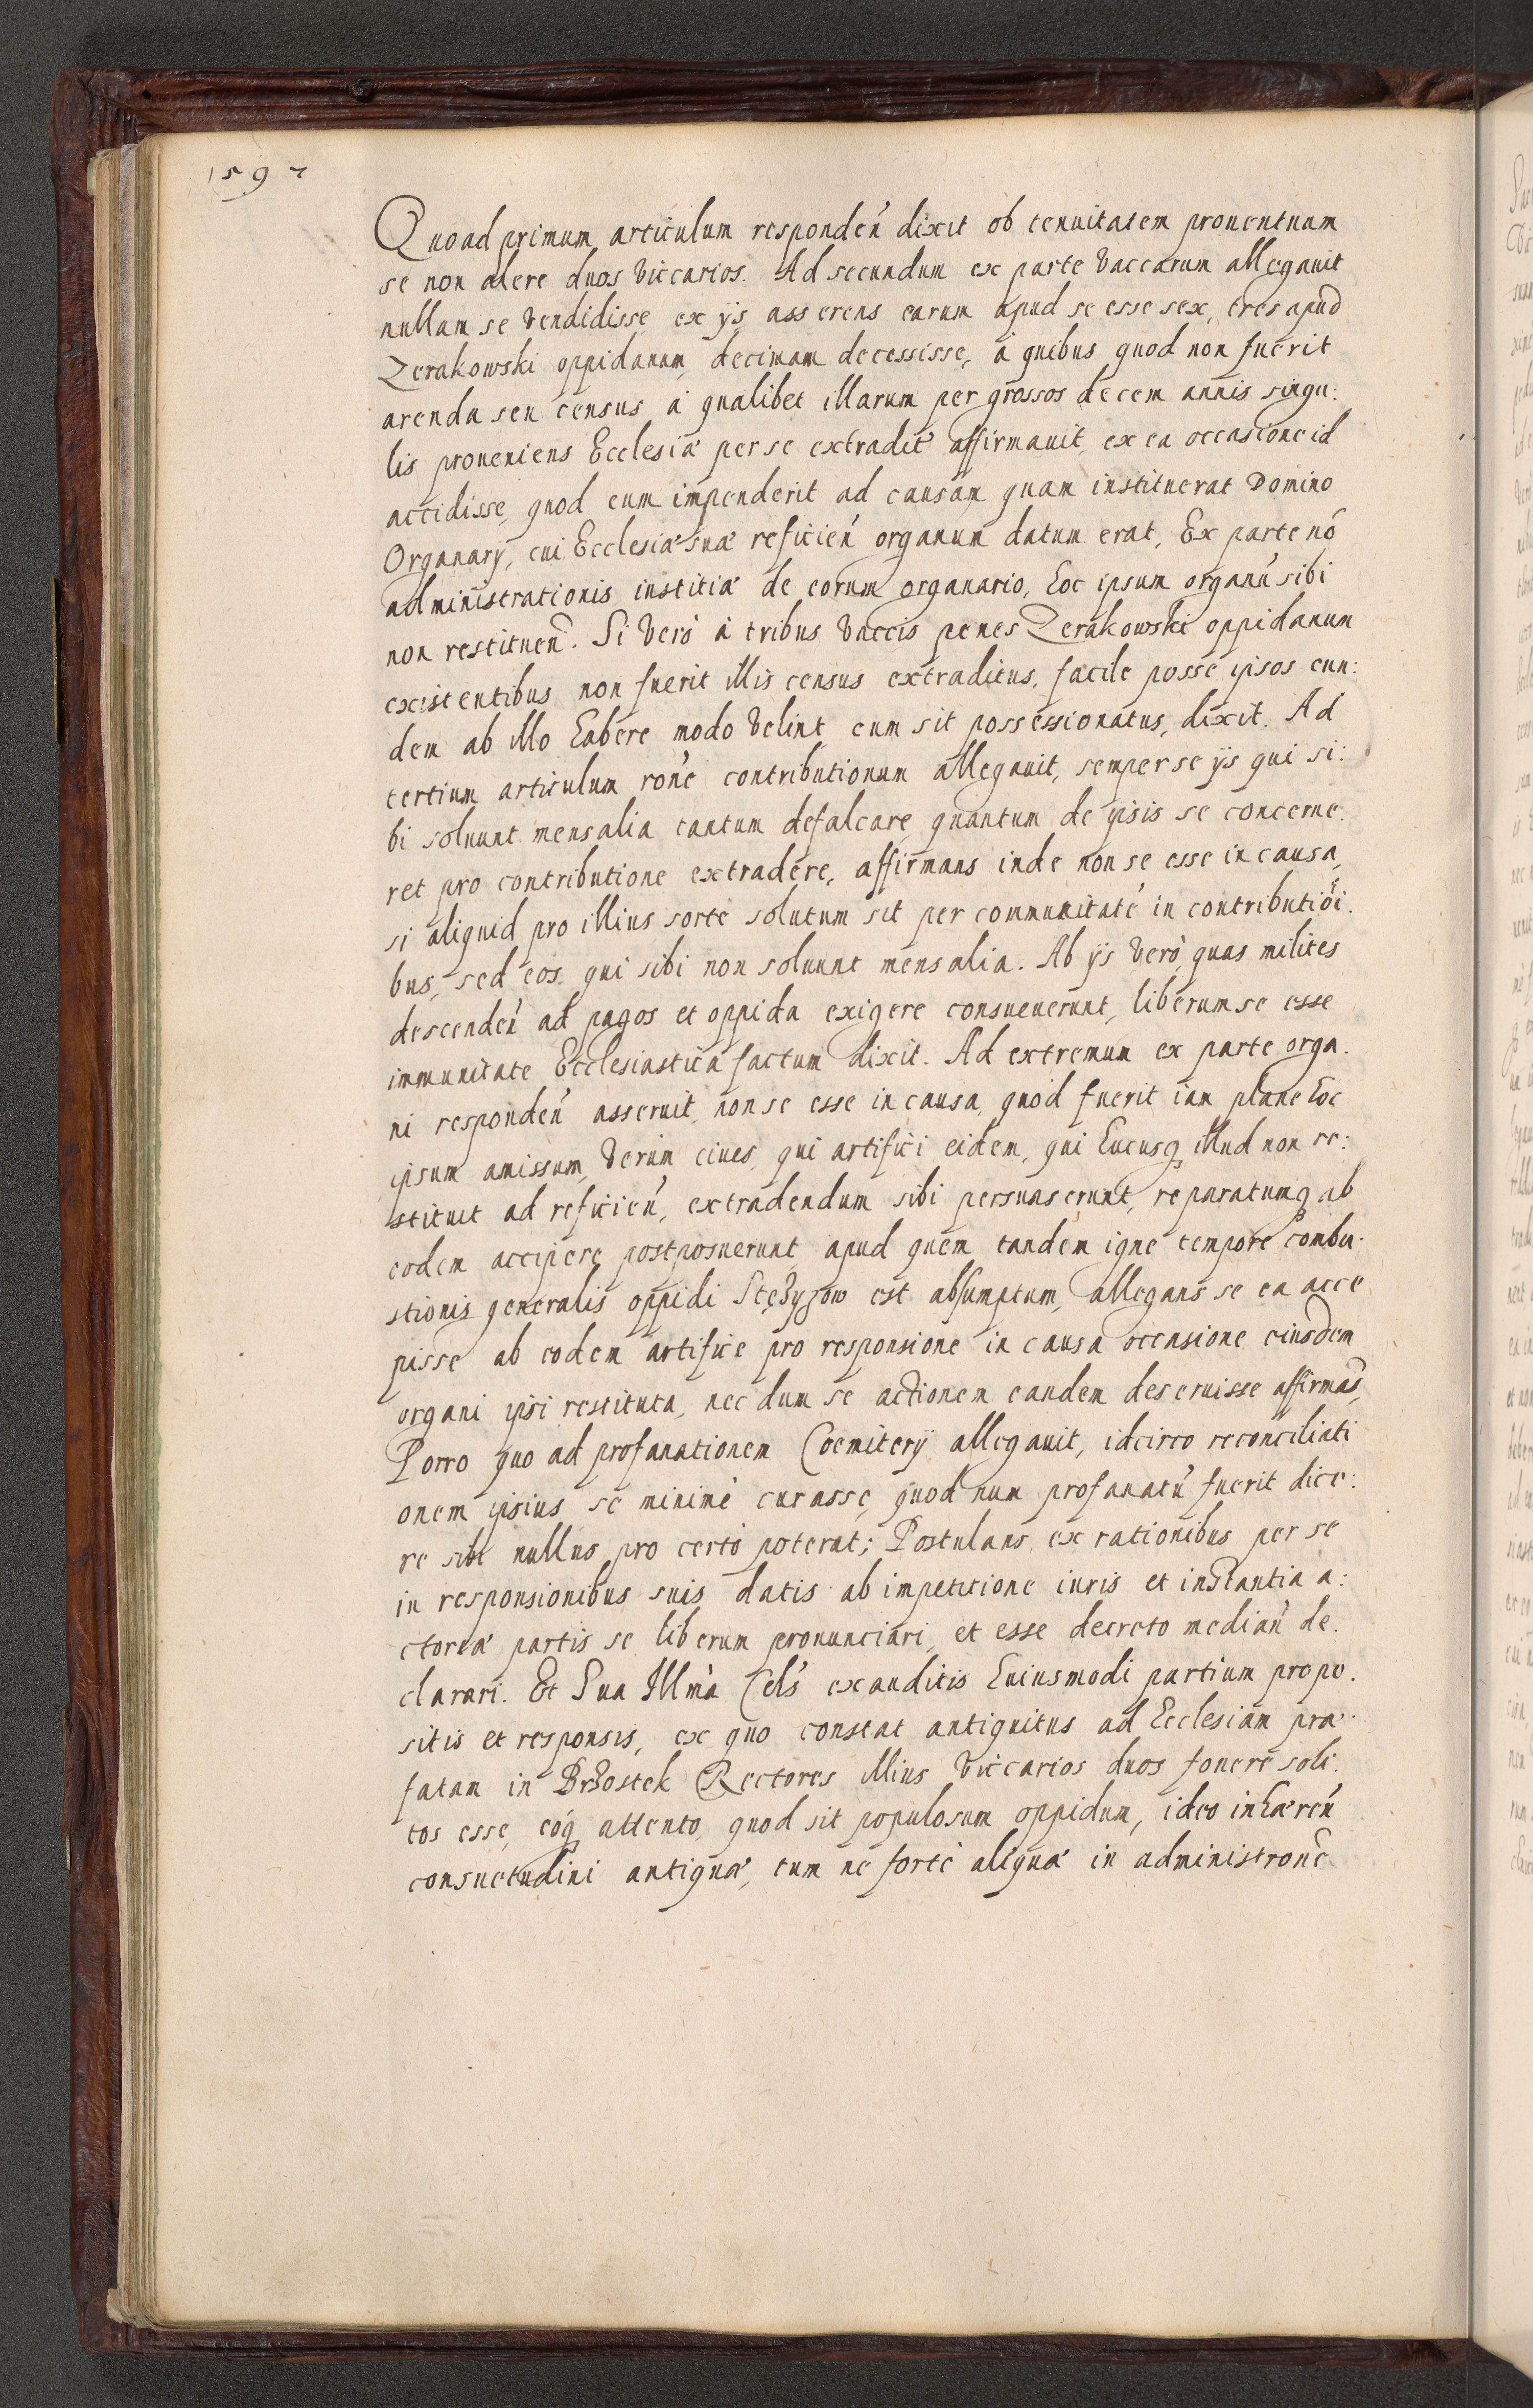 1597
Quoad primum articulum responden̄ dixit ob tenuitatem prouentuum
se non alere duos Viccarios. Ad secundum ex parte Vaccarum allegauit
nullam se Vendidisse ex ijs, asserens earum apud se esse sex, tres apud
Zerakowski oppidanum, decimam decessisse, à quibus quod non fuerit
arenda seu census à qualibet illarum per grossos decem annis singu:
lis proueniens Ecclesiæ per se extradit' affirmauit, ex ea occasione id
accidisse, quod eum impenderit ad causam quam instituerat Domino
Organarij, cui Ecclesiæ suæ reficien̄ organum datum erat, Ex parte nō
administrationis iustitiæ de eorum organario, hoc ipsum organū sibi
non restituen̄. Si Verò à tribus Vaccis penes Zerakowski oppidanum
existentibus non fuerit illis census extraditus, facile posse ipsos eun:
dem ab illo habere modo Velint, cum sit possessionatus, dixit. Ad
tertium articulum ron̄e contributionum allegauit, semper se ijs qui si:
bi soluunt mensalia tantum defalcare, quantum de ipsis se concerne:
ret pro contributione extradere, affirmans inde non se esse in causa,
si aliquid pro illius sorte solutum sit per communitatē in contributiōi.
bus, sed eos qui sibi non soluunt mensalia. Ab ijs Verò, quas milites
descenden̄ ad pagos et oppida exigere consueuerunt, liberum se esse
immunitate Ecclesiastica factum dixit. Ad extremum ex parte orga.
ni responden̄ asseruit, non se esse in causa, quod fuerit iam plane hoc
ipsum amissum, Verùm ciues, qui artifici eidem, qui hucusq; illud non re:
stituit ad reficien̄, extradendum sibi persuaserunt, reparatumq; ab
eodem accipere postposuerunt, apud quem tandem igne tempore combu.
stionis generalis oppidi Stężyzow est absumptum, allegans se ea acce
pisse ab eodem artifice pro responsione in causa occasione eiusdem
organi ipsi restituta, nec dum se actionem eandem deseruisse affirmās,
Porro quo ad profanationem Coemiterij allegauit, idcirco reconciliati
onem ipsius se minimè curasse, quod num profanatū fuerit dice:
re sibi nullus pro certo poterat; Postulans ex rationibus per se
in responsionibus suis datis ab impetitione iuris et instantia a:
ctoreæ partis se liberum pronunciari, et esse decreto median̄ de.
clarari. Et Sua Illmā Cels̄ exauditis huiusmodi partium propo.
sitis et responsis, ex quo constat antiquitus ad Ecclesiam præ.
fatam in Brzostek Rectores illius Viccarios duos fouere soli.
tos esse, eoq; attento, quod sit populosum oppidum, ideo inhæren̄
consuetudini antiquæ, tum ne fortè aliqua in administronē